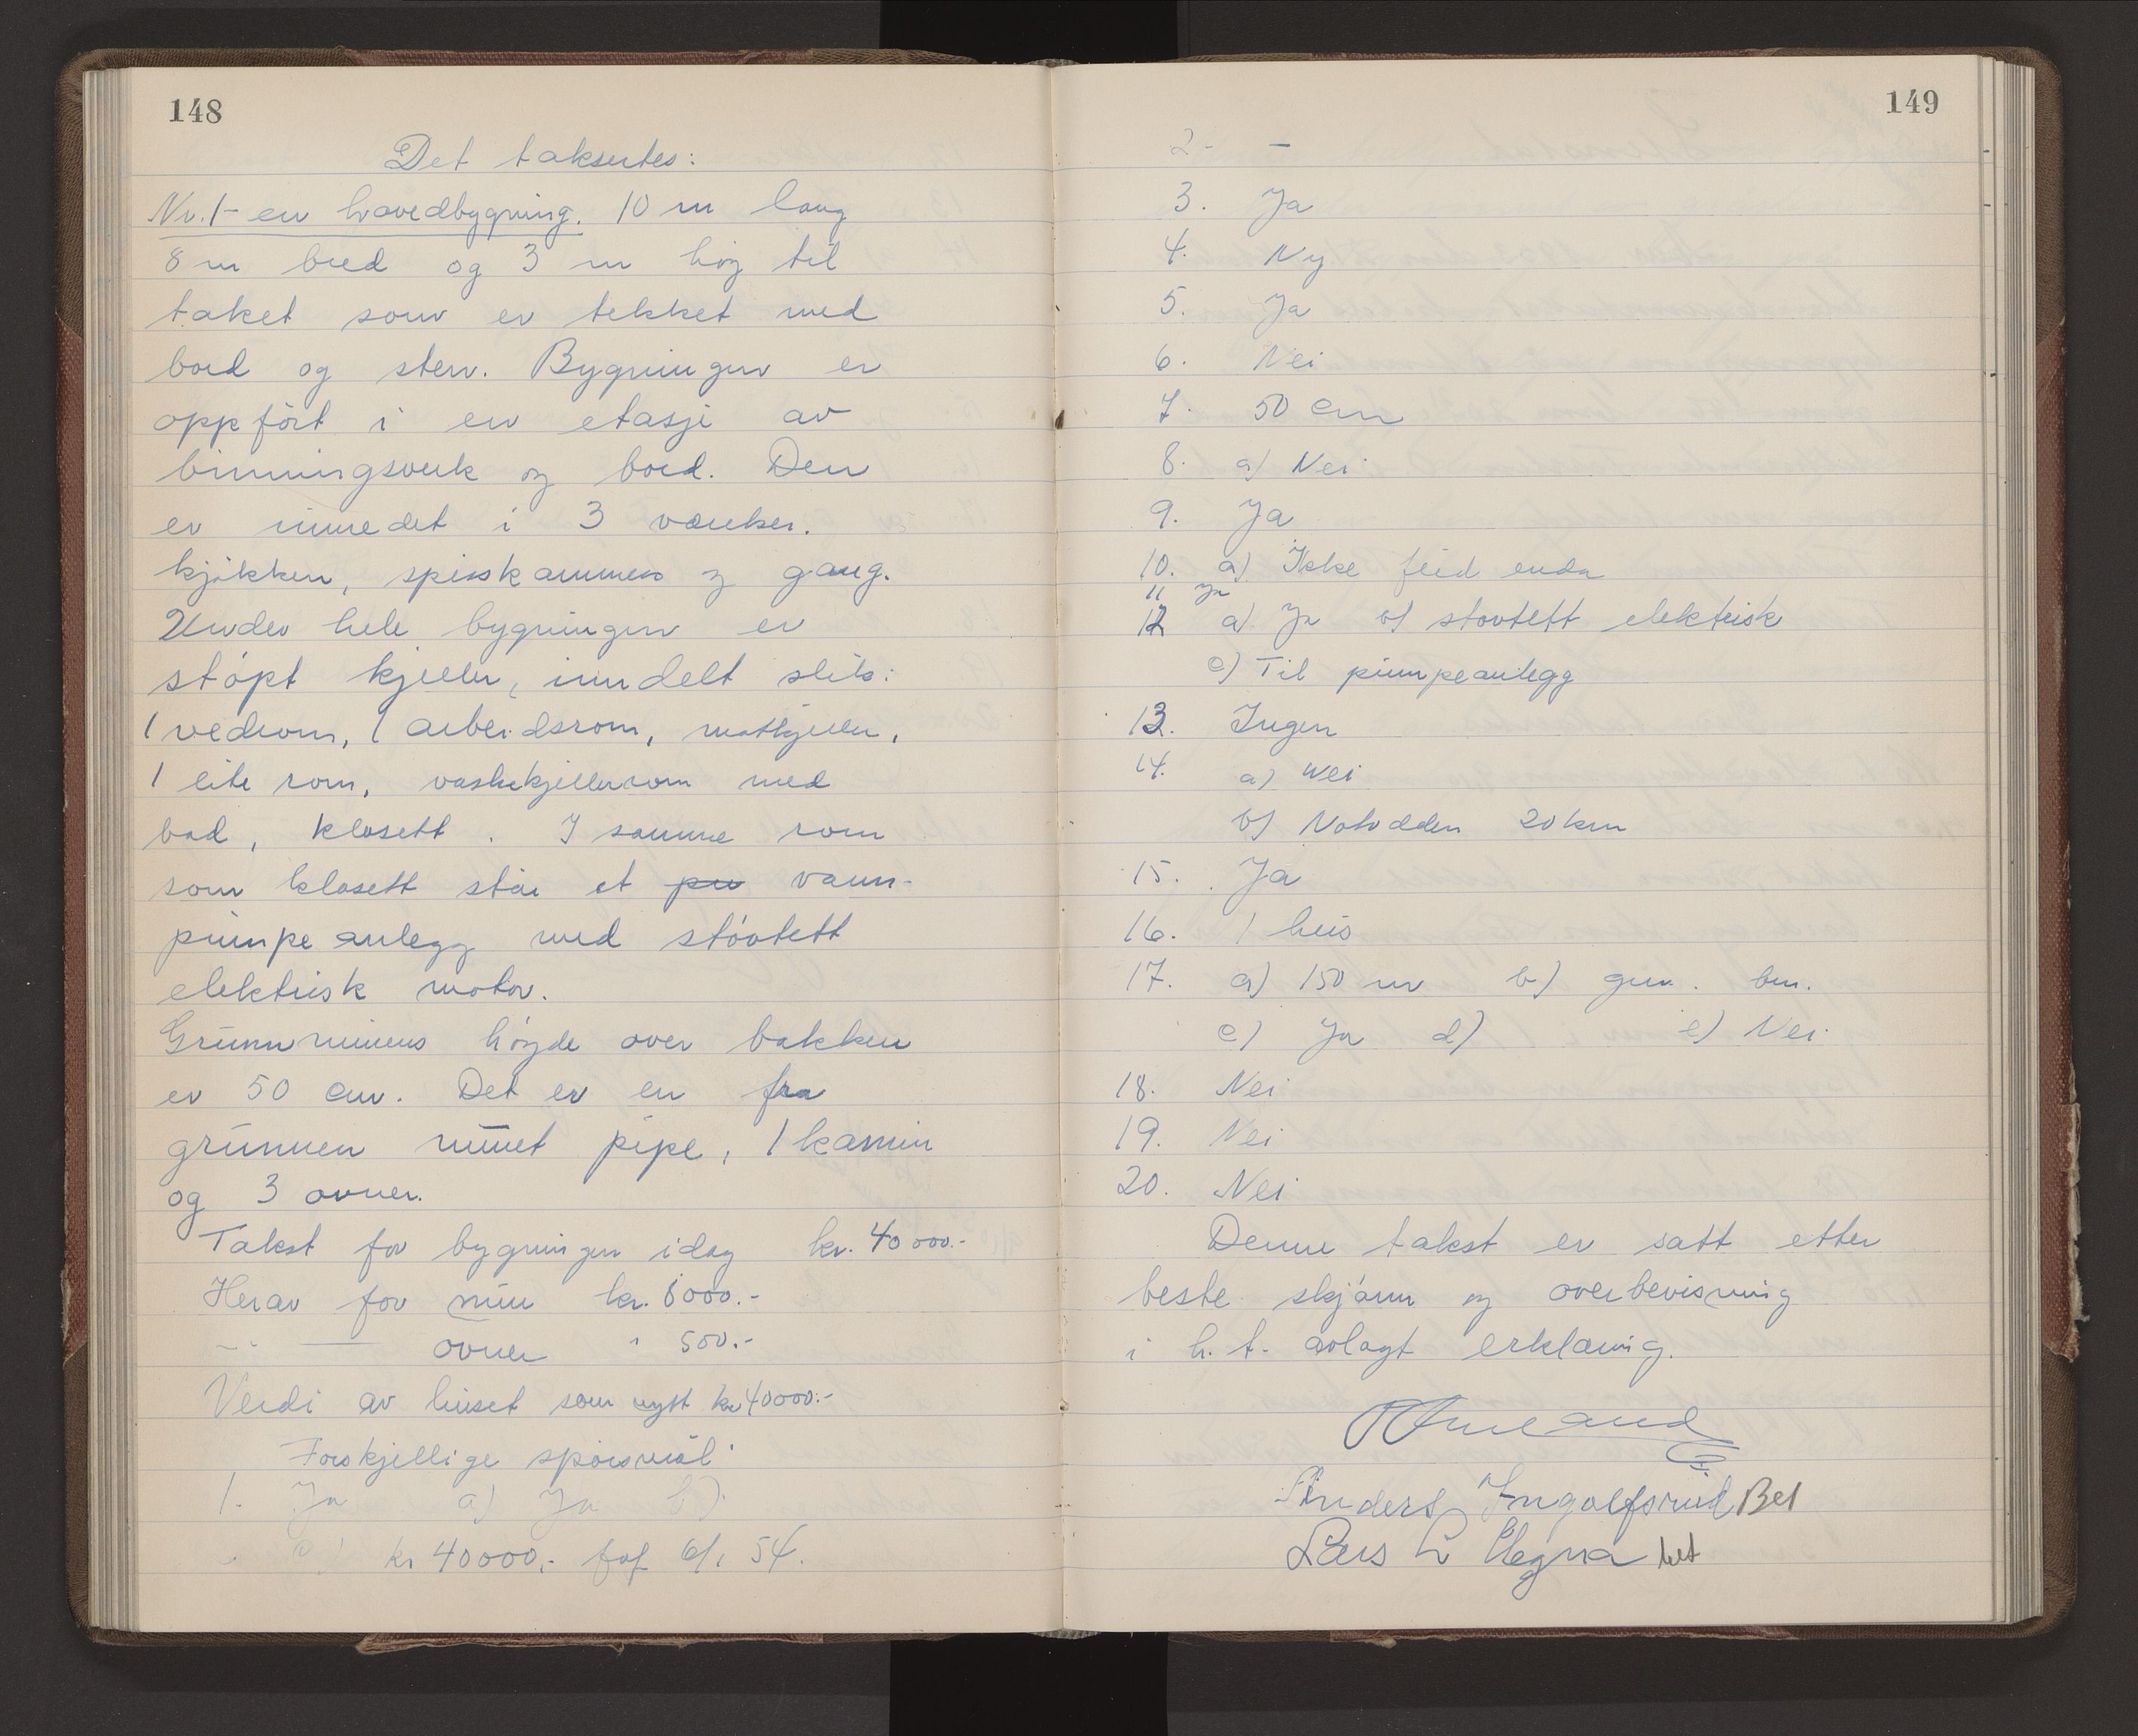 148
Det taksertes:
Nr. 1 - en hovedbygning. 10 m lang
8 m bred og 3 m høy til
taket som er tekket med
bord og sten. Bygningen er
oppført i en etasje av
binningsverk og bord. Den
er innredet i 3 værelser.
kjøkken, spisskammers og gang.
Under hele bygningen er
støpt kjeller, inndelt slik:
1 vedrom, 1 arbeidsrom, matkjeller,
1 lite rom, vaskekjellerrom med
bad, klosett. I samme rom
som klosett står et pu vann-
pumpeanlegg med støvtett
elektrisk motor.
Grunnmurens høyde over bakken
er 50 cm. Det er en fra
grunnen muret pipe, 1 kamin
og 3 ovner.
Takst for bygningen idag kr. 40000.-
Herav for mur kr. 8000.-
-"- — ovner " 500.-
Verdi av huset som nytt kr 40000.-
Forskjellige spørsmål
1. Ja a) Ja b)
c) kr 40000,- 54.
149
2- -
3. Ja
4. Ny
5. Ja
6. Nei
7. 50 cm
8. a) Nei
9. Ja
10. a) Ikke feid enda
11 Ja
12 a) Ja b) støvtett elektrisk
c) Til pumpeanlegg
13. Ingen
14. a) Nei
b) Notodden 20 km
15. Ja
16. 1 hus
17. a) 150 m b)
c) Ja d) e) Nei
18. Nei
19. Nei
20. Nei
Denne takst er satt etter
beste skjønn og overbevisning
i h. t. avlagt erklæring.
Anders Ingolfsrud
Lars